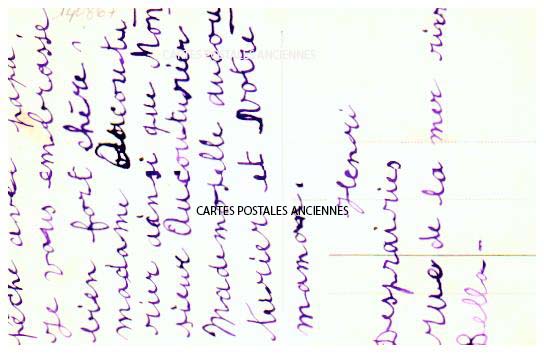 pêche avec papa.
Je vous embrasse
bien fort chère
madame Aucoutu
rier ainsi que Mon
sieur Aucouturier
Mademoiselle Aucou
turier et Votre
maman.
Henri
Desprairies
rue de la mer
Bella-
CARTES POSTALES ANCIENNES
CARTES POSTALES ANCIENNES